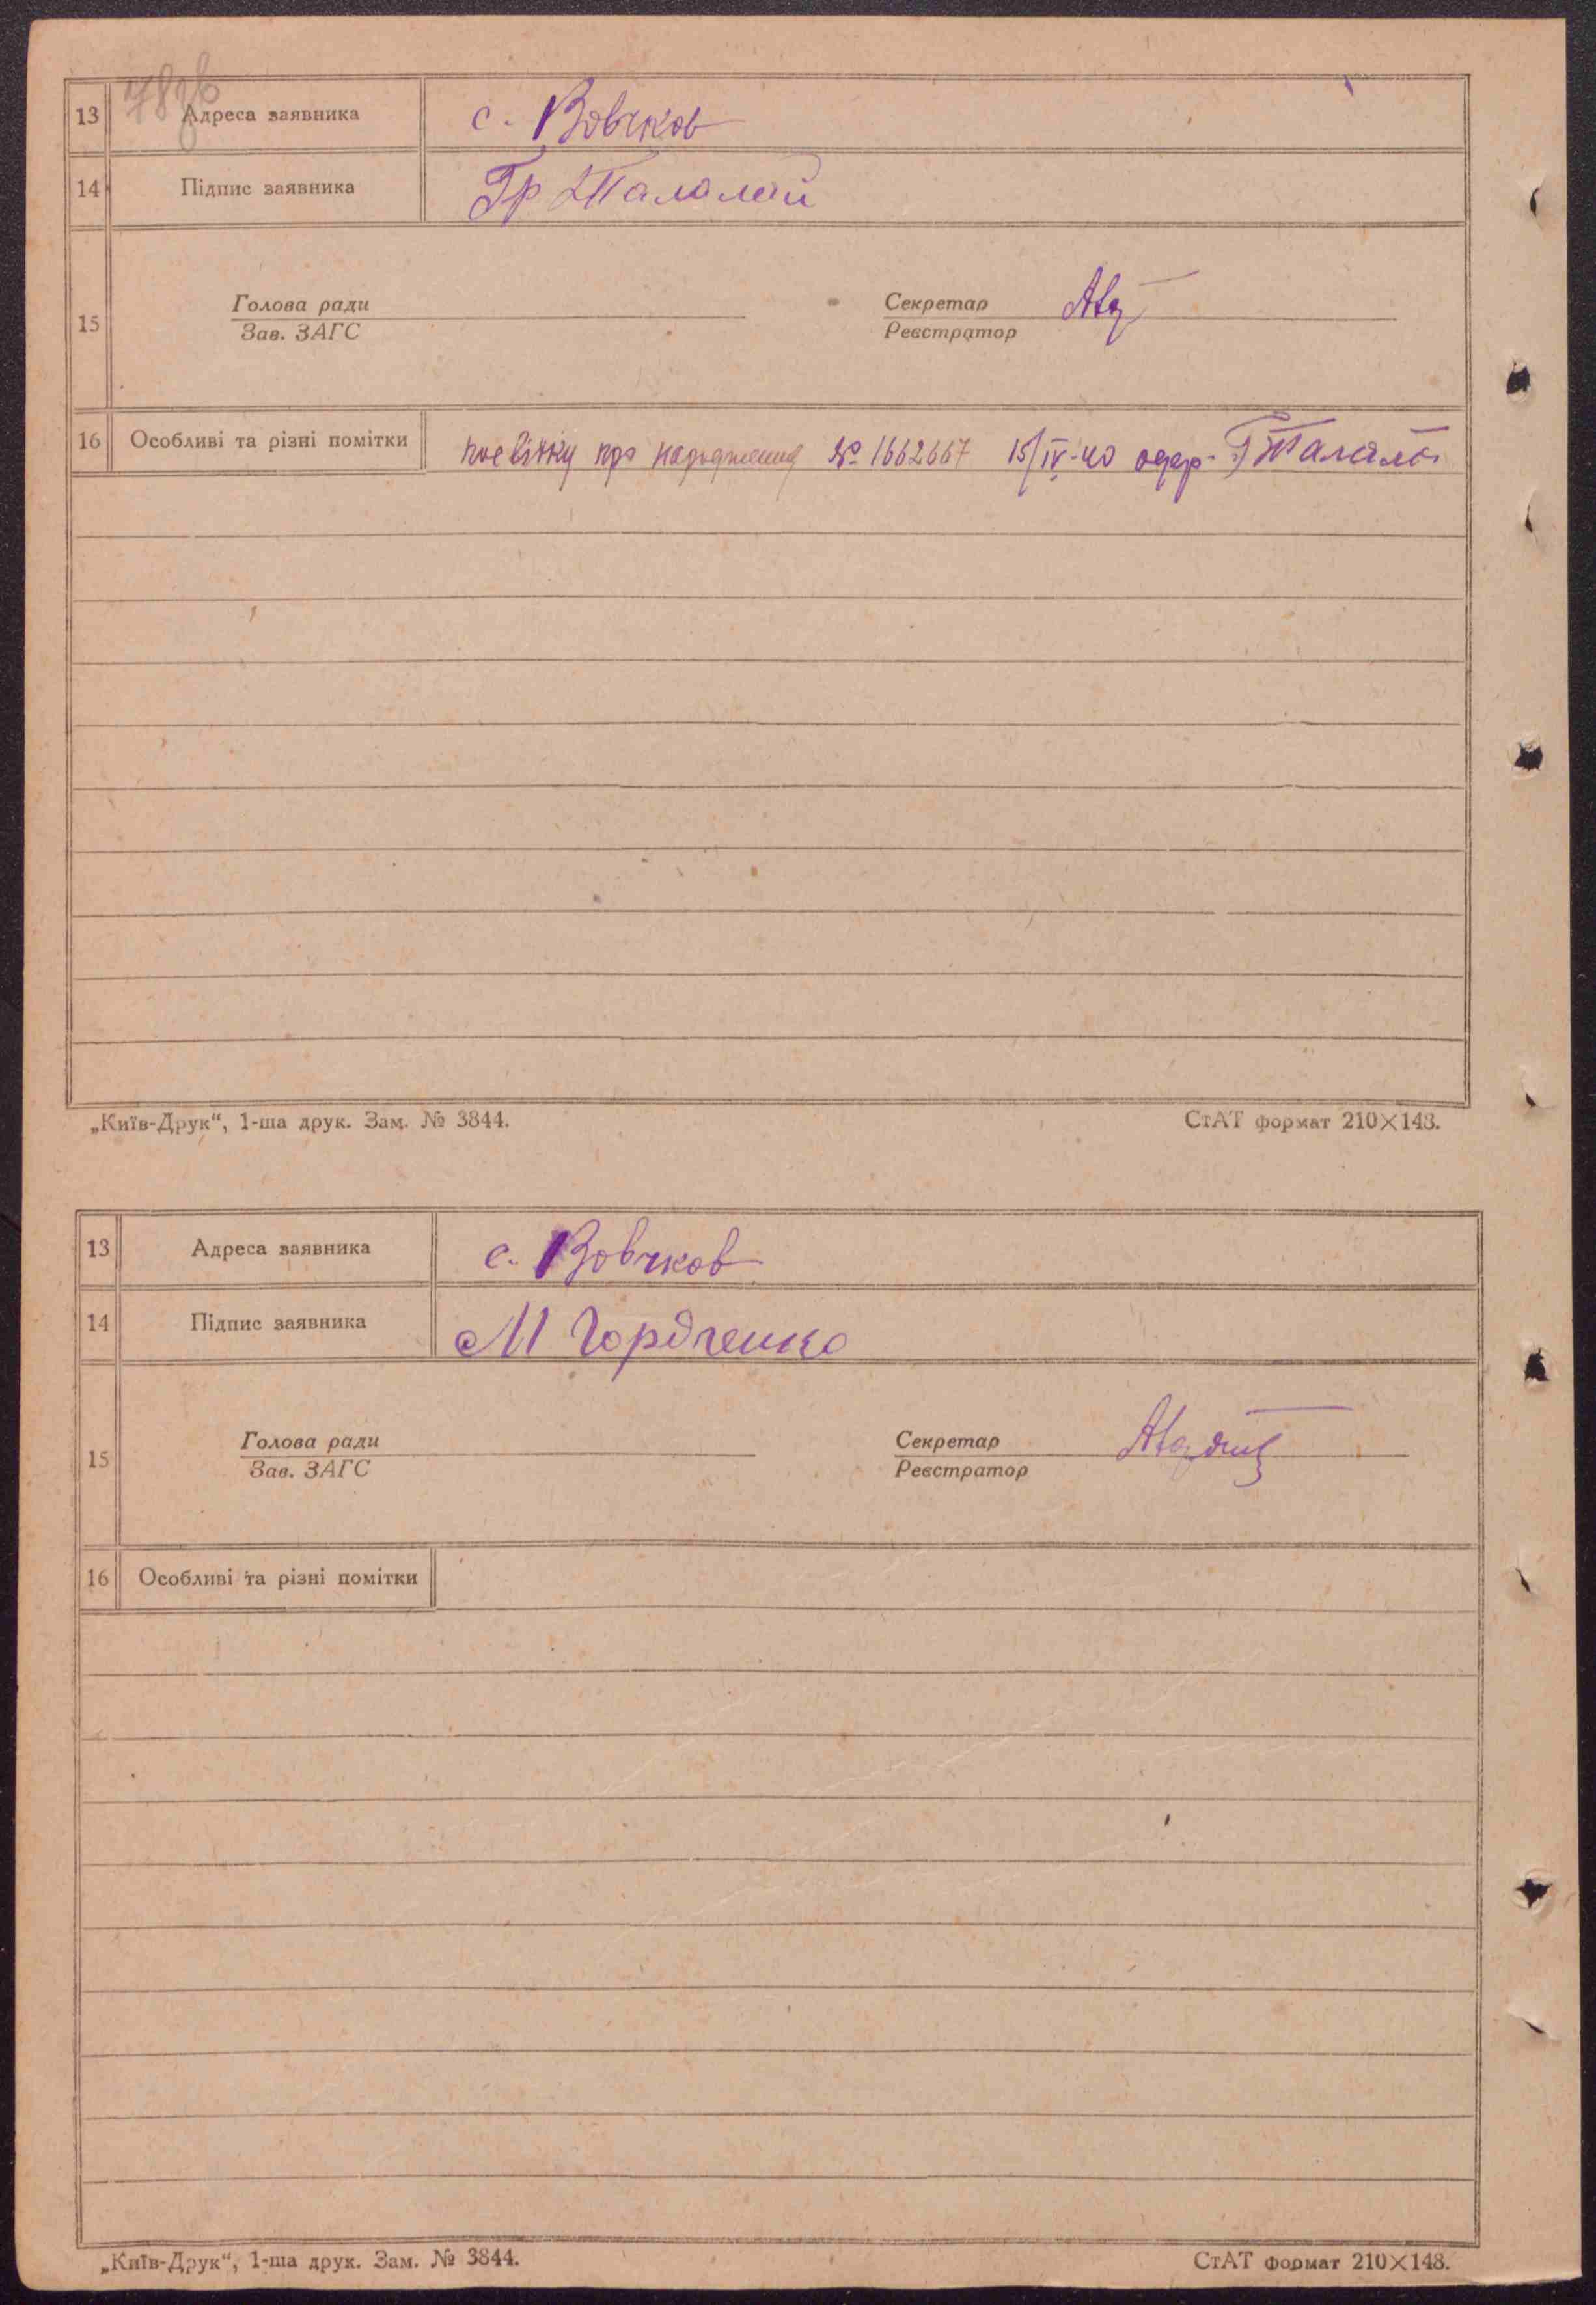 13 Адреса заявника с. Вовчков
14 Підпис заявника Гр Талалай
15 Голова ради Секретар
Зав. ЗАГС Реєстратор
16 Особливі та різні помітки про народження № 1662667 15/IV-40 одер. Г Талалай
„Київ-Друк“, 1-ша друк. Зам. № 3844. СтАТ формат 210×148.
13 Адреса заявника с. Вовчков
14 Підпис заявника М Гордченко
15 Голова ради Секретар
Зав. ЗАГС Реєстратор
16 Особливі та різні помітки
„Київ-Друк“, 1-ша друк. Зам. № 3844. СтАТ формат 210×148.